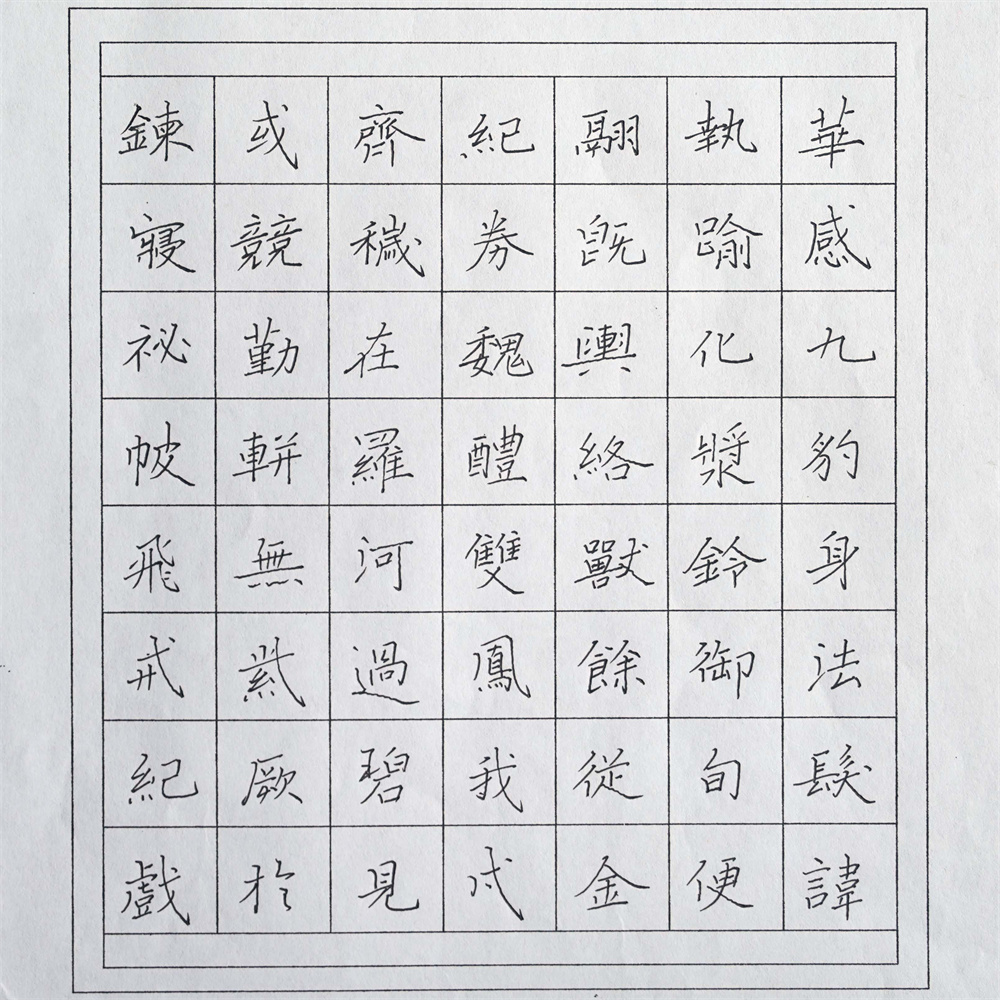 華感九豹身法髮諱
執踰化漿鈴御旬便
翮既輿絡獸餘從金
紀券魏醴雙鳳我
齊穢在羅河過碧見
或競勤軿無紫厥於
鍊寢祕帔飛戒紀戲